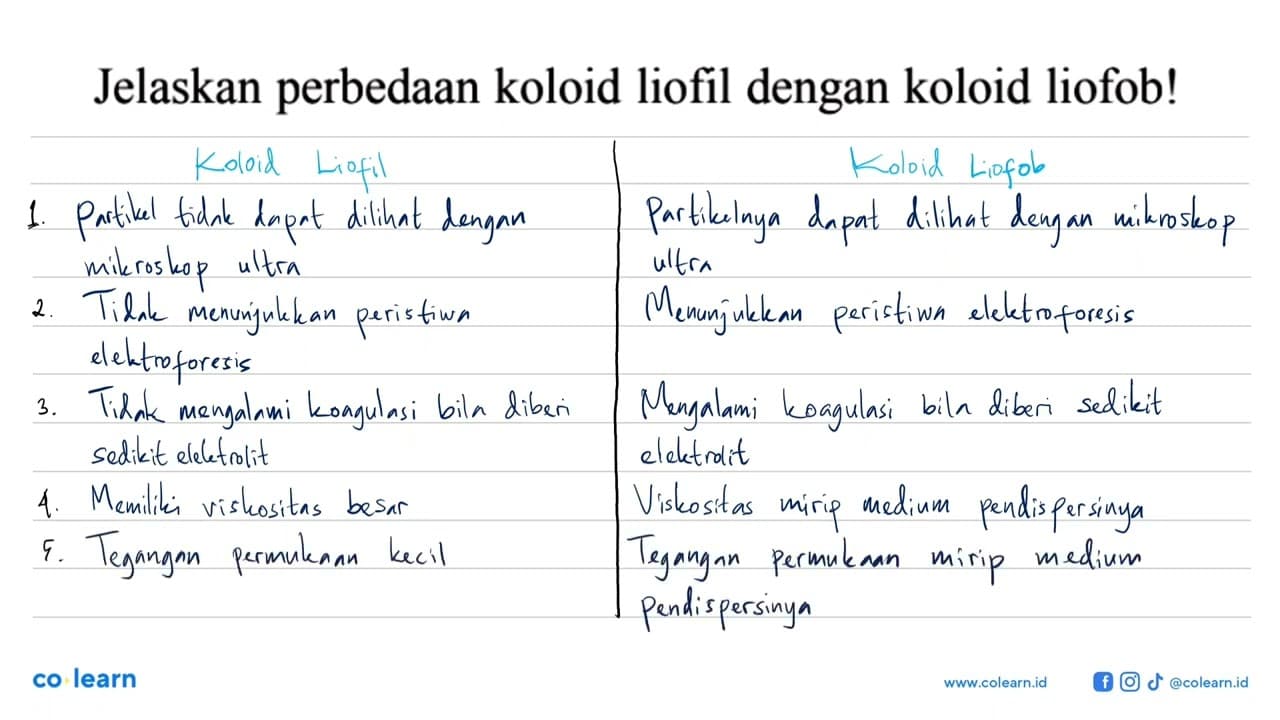 Jelaskan perbedaan koloid liofil dengan koloid liofob!
Koloid Liofil
1. Partikel tidak dapat dilihat dengan
mikroskop ultra
2. Tidak menunjukkan peristiwa
elektroforesis
3. Tidak mengalami koagulasi bila diberi
sedikit elektrolit
4. Memiliki viskositas besar
5. Tegangan permukaan kecil
Koloid Liofob
Partikelnya dapat dilihat dengan mikroskop
ultra
Menunjukkan peristiwa elektroforesis
Mengalami koagulasi bila diberi sedikit
elektrolit
Viskositas mirip medium pendispersinya
Tegangan permukaan mirip medium
pendispersinya
co learn
www.colearn.id
@colearn.id